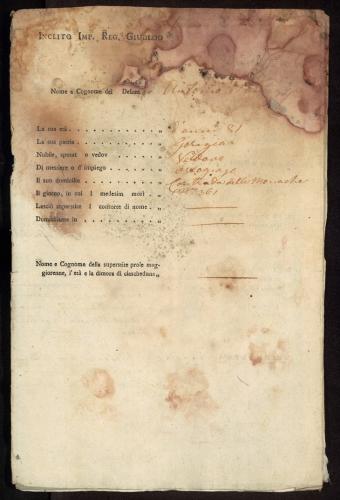 INCLITO IMP. REG. GIUDIZIO
Nome e Cognome del Defunto Antonio
La sua età . . . . . . . . . . . . „ d'anni 81
La sua patria . . . . . . . . . . . „
Nubile, sposat o vedov . . . . . . . „ Vedovo
Di mestiere o d'impiego . . . . . . . „
Il suo domicilio . . . . . . . . . . „ Contrada delle Monache
Il giorno, in cui l medesim morì . . „
Lasciò superstite l consorte di nome . . „
Domiciliante in . . . . . . . . . . „
Nome e Cognome della superstite prole mag-
giorenne, l'età e la dimora di ciascheduna „